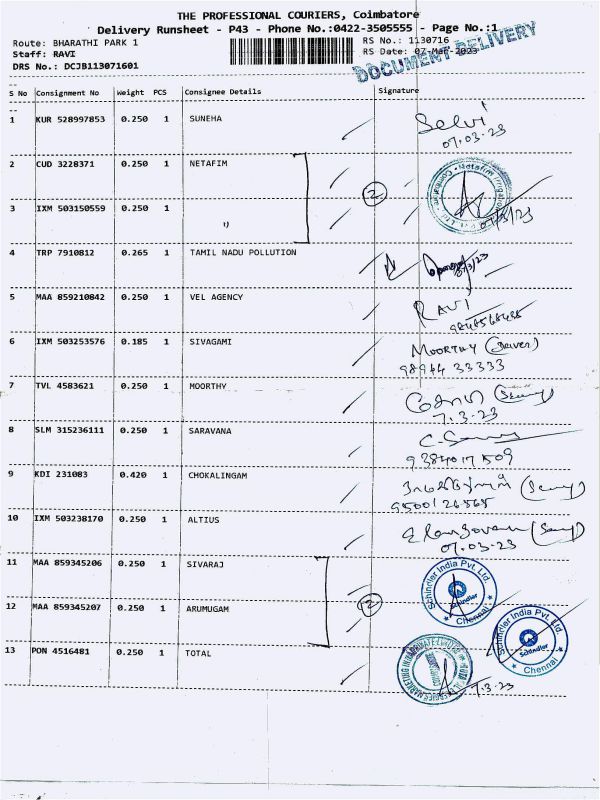 THE PROFESSIONAL COURIERS, Coimbatore
Delivery Runsheet - P43 - Phone No.:0422-3505555 - Page No.:1
Route: BHARATHI PARK 1
RS No.: 1130716
Staff: RAVI
RS Date: 07-Mar-2023
DRS No.: DCJB113071601
DOCUMENT DELIVERY
S No Consignment No Weight PCS Consignee Details Signature
1 KUR 528997853 0.250 1 SUNEHA Selvi
07.03.23
2 CUD 3228371 0.250 1 NETAFIM
2
3 IXM 503150559 0.250 1 11
07/3/23
4 TRP 7910812 0.265 1 TAMIL NADU POLLUTION
5 MAA 859210842 0.250 1 VEL AGENCY RAVI
6 IXM 503253576 0.185 1 SIVAGAMI MOORTHY (Driver)
98944 33333
7 TVL 4583621 0.250 1 MOORTHY
7.3.23
8 SLM 315236111 0.250 1 SARAVANA
9384017509
9 KDI 231083 0.420 1 CHOKALINGAM
9500126565
10 IXM 503238170 0.250 1 ALTIUS
07.03.23
11 MAA 859345206 0.250 1 SIVARAJ
Schindler India Pvt. Ltd.
Schindler
Chennai
2
12 MAA 859345207 0.250 1 ARUMUGAM
Schindler India Pvt. Ltd
Schindler
Chennai
13 PON 4516481 0.250 1 TOTAL
7.3.23